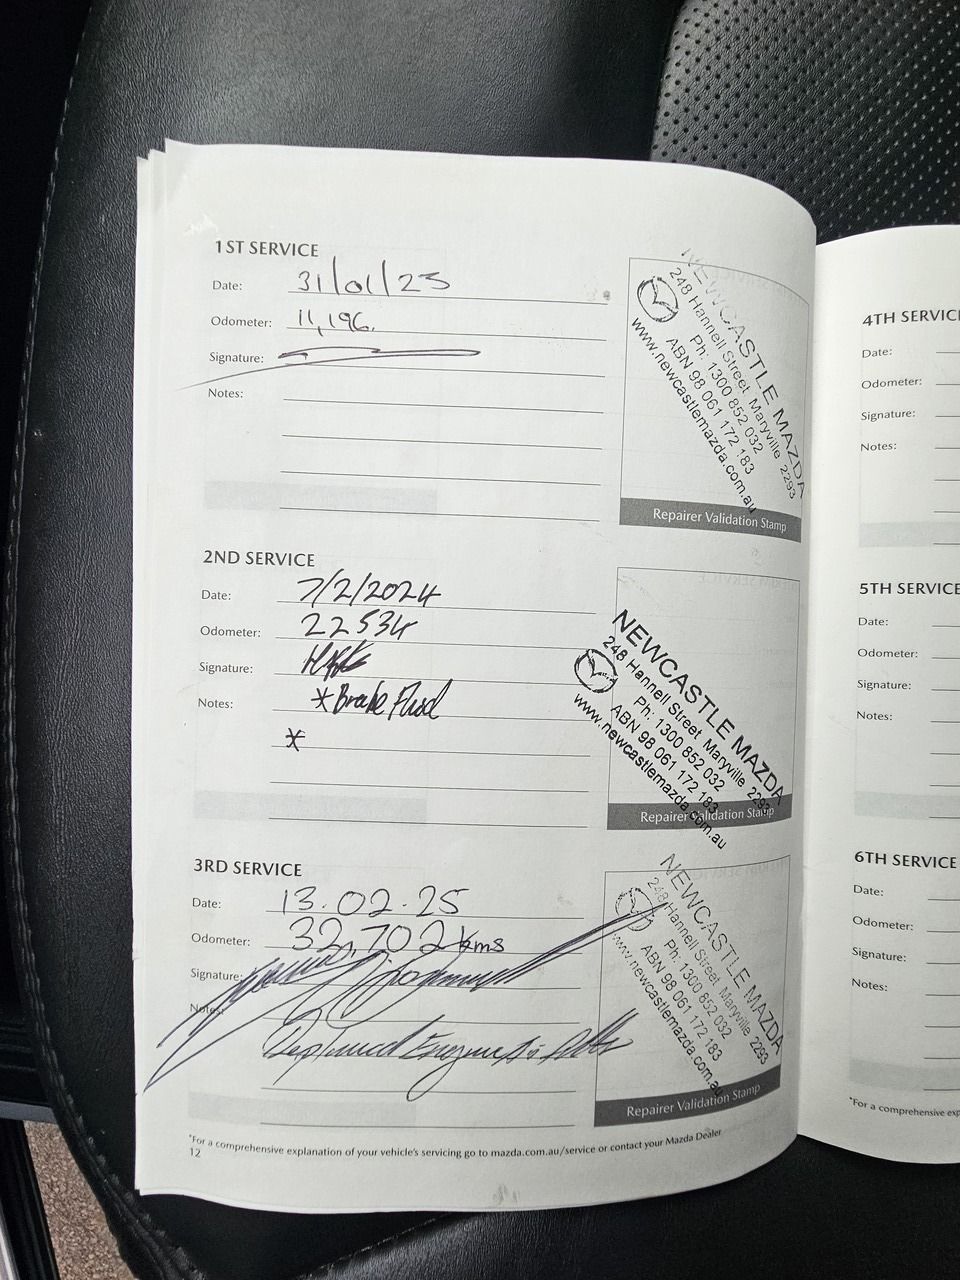 1ST SERVICE
Date: 31/01/23
Odometer: 11,196.
Signature:
Notes:
NEWCASTLE MAZDA
248 Hannell Street Maryville 2293
Ph: 1300 852 032
ABN 98 061 172 183
www.newcastlemazda.com.au
Repairer Validation Stamp
2ND SERVICE
Date: 7/2/2024
Odometer: 22534
Signature:
Notes: *Brake Fluid
*
NEWCASTLE MAZDA
248 Hannell Street Maryville 2293
Ph: 1300 852 032
ABN 98 061 172 183
www.newcastlemazda.com.au
Repairer Validation Stamp
3RD SERVICE
Date: 13.02.25
Odometer: 32,702kms
Signature:
Notes:
Replaced Engine
NEWCASTLE MAZDA
248 Hannell Street Maryville 2293
Ph: 1300 852 032
ABN 98 061 172 183
www.newcastlemazda.com.au
Repairer Validation Stamp
*For a comprehensive explanation of your vehicle's servicing go to mazda.com.au/service or contact your Mazda Dealer
12
4TH SERVIC
Date:
Odometer:
Signature:
Notes:
5TH SERVIC
Date:
Odometer:
Signature:
Notes:
6TH SERVICE
Date:
Odometer:
Signature:
Notes:
*For a comprehensive exp